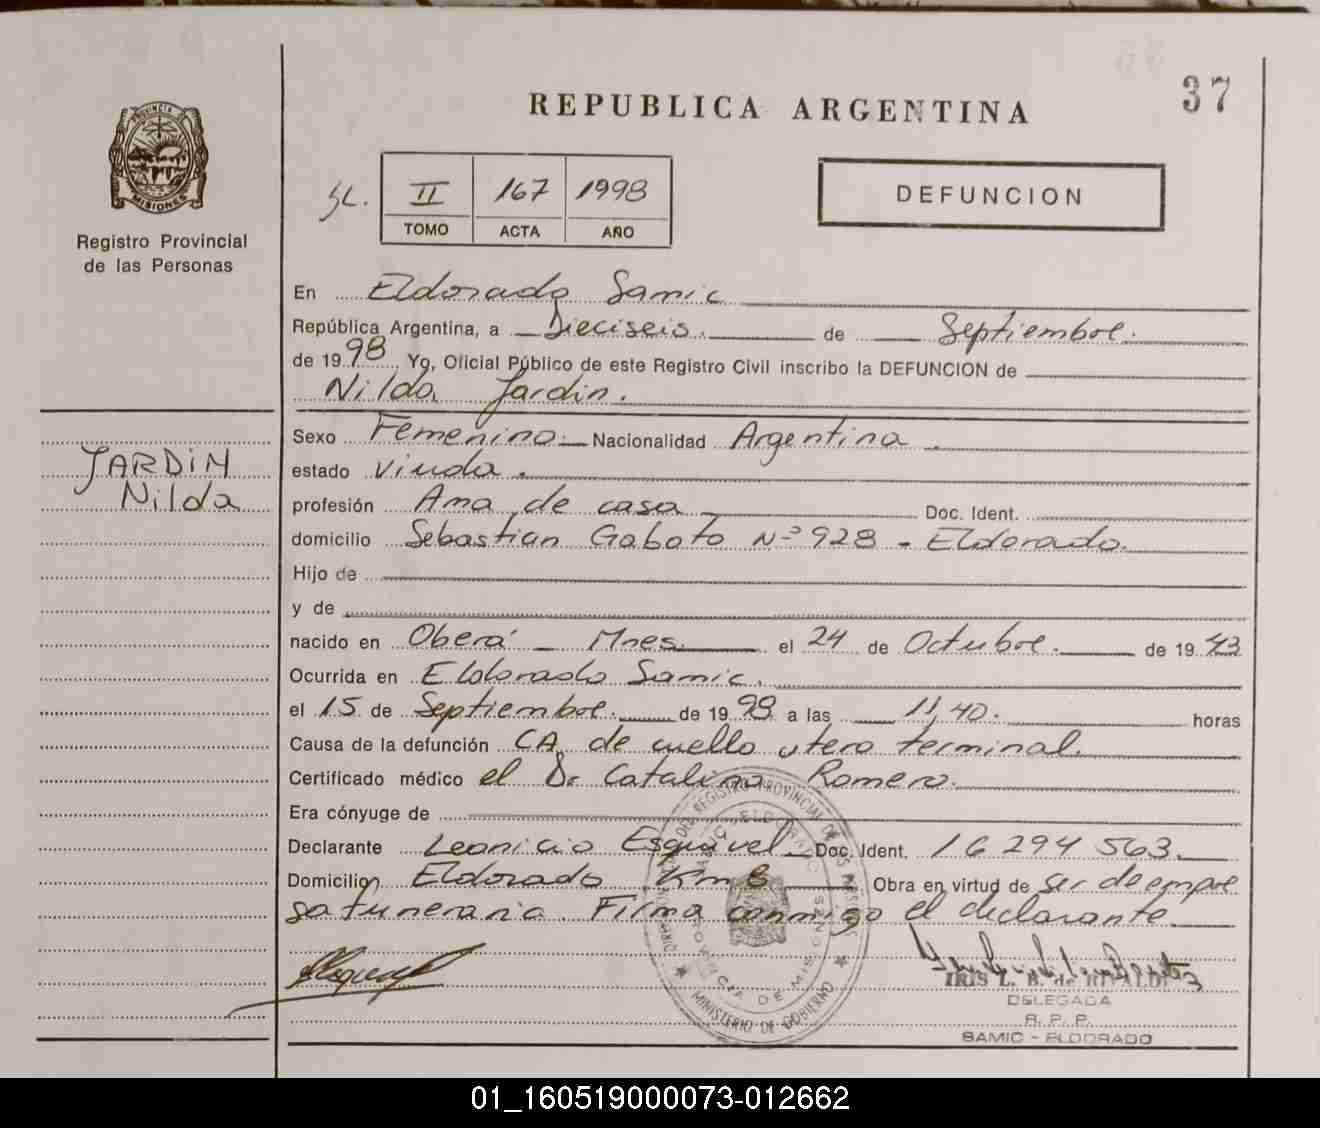 37
REPUBLICA ARGENTINA
PROVINCIA
MISIONES
Registro Provincial
de las Personas
II 167 1998
TOMO ACTA AÑO
DEFUNCION
En Eldorado Samic
República Argentina, a Dieciseis. de Septiembre.
de 1998. Yo, Oficial Público de este Registro Civil inscribo la DEFUNCION de
Nilda Jardin.
JARDIN
Nilda
Sexo Femenino. Nacionalidad Argentina.
estado Viuda.
profesión Ama de casa Doc. Ident.
domicilio Sebastian Gaboto Nº 928 - Eldorado.
Hijo de
y de
nacido en Oberá - Mnes. el 24 de Octubre. de 1943
Ocurrida en Eldorado Samic.
el 15 de Septiembre. de 1998 a las 11,40. horas
Causa de la defunción CA. de cuello utero terminal.
Certificado médico el Dr Catalino Romero.
Era cónyuge de
Declarante Leonicio Esquivel Doc. Ident. 16 294 563.
Domicilio Eldorado Km 8 Obra en virtud de ser de empre
sa funeraria. Firma conmigo el declarante
MINISTERIO DE GOBIERNO
PROVINCIA DE MISIONES
DELEGADA
R. P. P.
SAMIC - ELDORADO
01_160519000073-012662